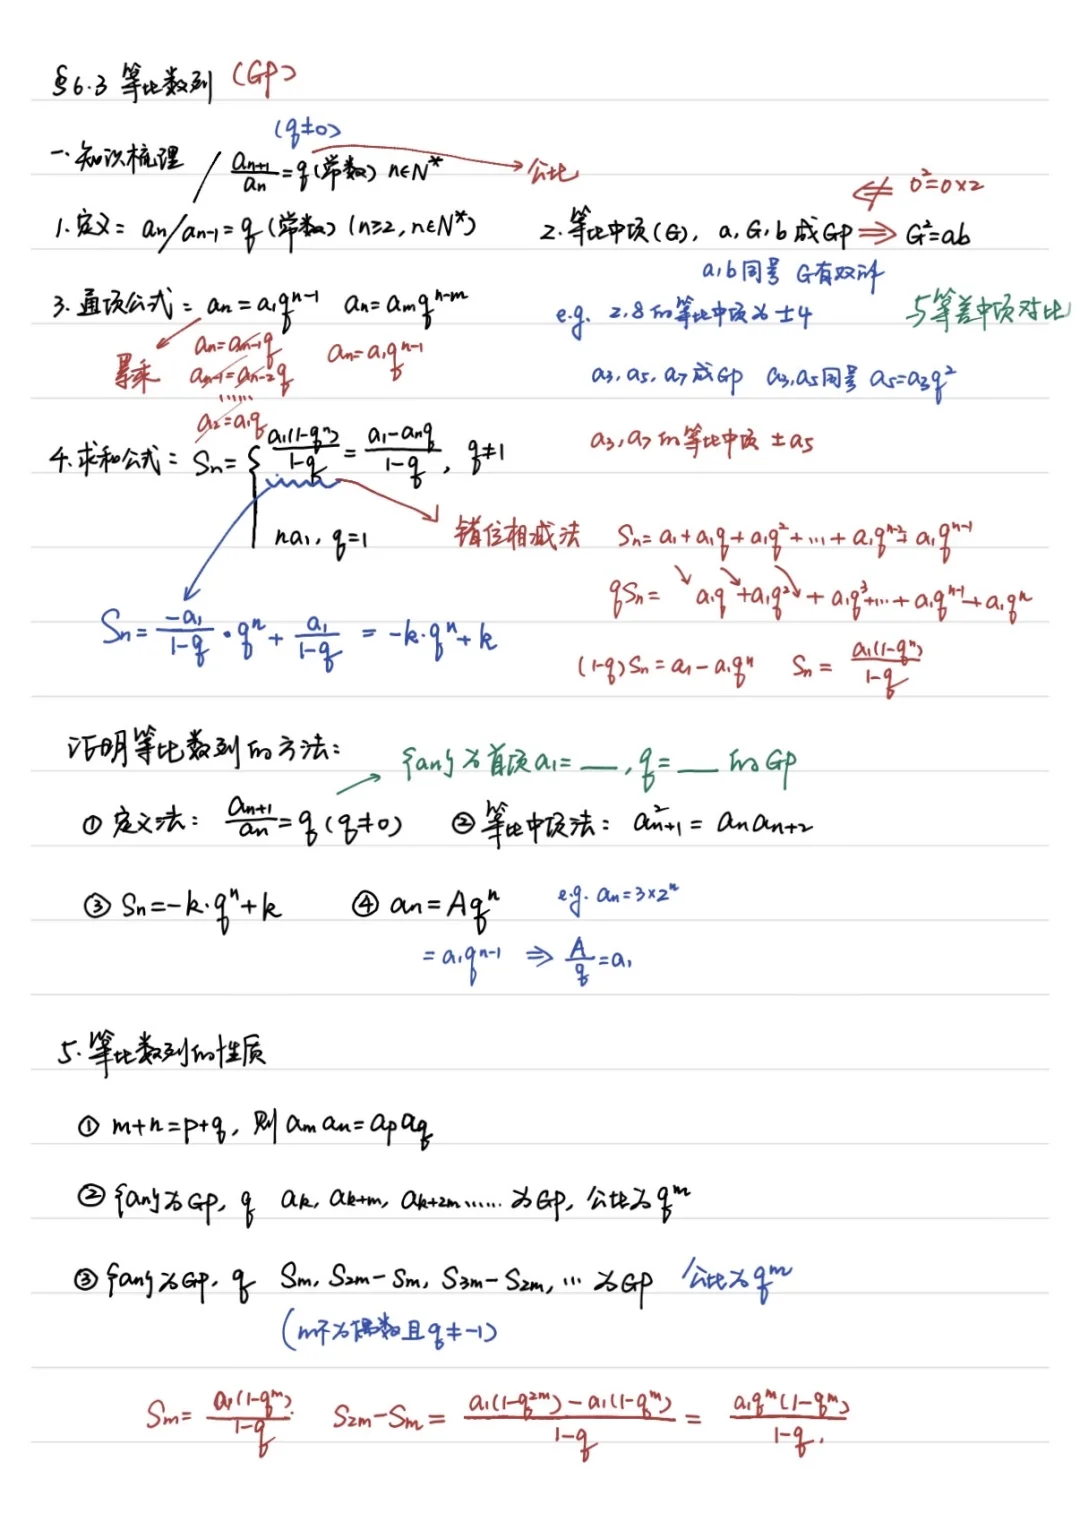 §6.3 等比数列 (GP)
(q≠0)
一、知识梳理 / aₙ₊₁/aₙ = q (常数) n∈N* → 公比
⇍ 0²=0×2
1. 定义: aₙ/aₙ₋₁ = q (常数) (n≥2, n∈N*)
2. 等比中项(G), a, G, b 成GP ⇒ G²=ab
a,b同号 G有双解
3. 通项公式: aₙ=a₁qⁿ⁻¹ aₙ=aₘqⁿ⁻ᵐ
e.g. 2,8的等比中项为±4
与等差中项对比
累乘
aₙ=aₙ₋₁q
aₙ₋₁=aₙ₋₂q
......
a₂=a₁q
aₙ=a₁qⁿ⁻¹
a₃, a₅, a₇成GP a₃,a₅同号 a₅=a₃q²
a₃,a₇的等比中项 ±a₅
4. 求和公式: Sₙ= { a₁(1-qⁿ)/(1-q) = (a₁-aₙq)/(1-q), q≠1
na₁, q=1
错位相减法 Sₙ=a₁+a₁q+a₁q²+...+a₁qⁿ⁻²+a₁qⁿ⁻¹
qSₙ= a₁q+a₁q²+a₁q³+...+a₁qⁿ⁻¹+a₁qⁿ
(1-q)Sₙ=a₁-a₁qⁿ Sₙ= a₁(1-qⁿ)/(1-q)
Sₙ= -a₁/(1-q)·qⁿ + a₁/(1-q) = -k·qⁿ+k
证明等比数列的方法:
{aₙ}为首项a₁=__, q=__的GP
① 定义法: aₙ₊₁/aₙ = q (q≠0) ② 等比中项法: aₙ₊₁² = aₙaₙ₊₂
③ Sₙ=-k·qⁿ+k ④ aₙ=Aqⁿ e.g. aₙ=3×2ⁿ
=a₁qⁿ⁻¹ ⇒ A/q=a₁
5. 等比数列的性质
① m+n=p+q, 则aₘaₙ=aₚa_q
② {aₙ}为GP, q aₖ, aₖ₊ₘ, aₖ₊₂ₘ......为GP, 公比为qᵐ
③ {aₙ}为GP, q Sₘ, S₂ₘ-Sₘ, S₃ₘ-S₂ₘ, ...为GP 公比为qᵐ
(m不为偶数且q≠-1)
Sₘ= a₁(1-qᵐ)/(1-q) S₂ₘ-Sₘ= (a₁(1-q²ᵐ)-a₁(1-qᵐ))/(1-q) = a₁qᵐ(1-qᵐ)/(1-q).